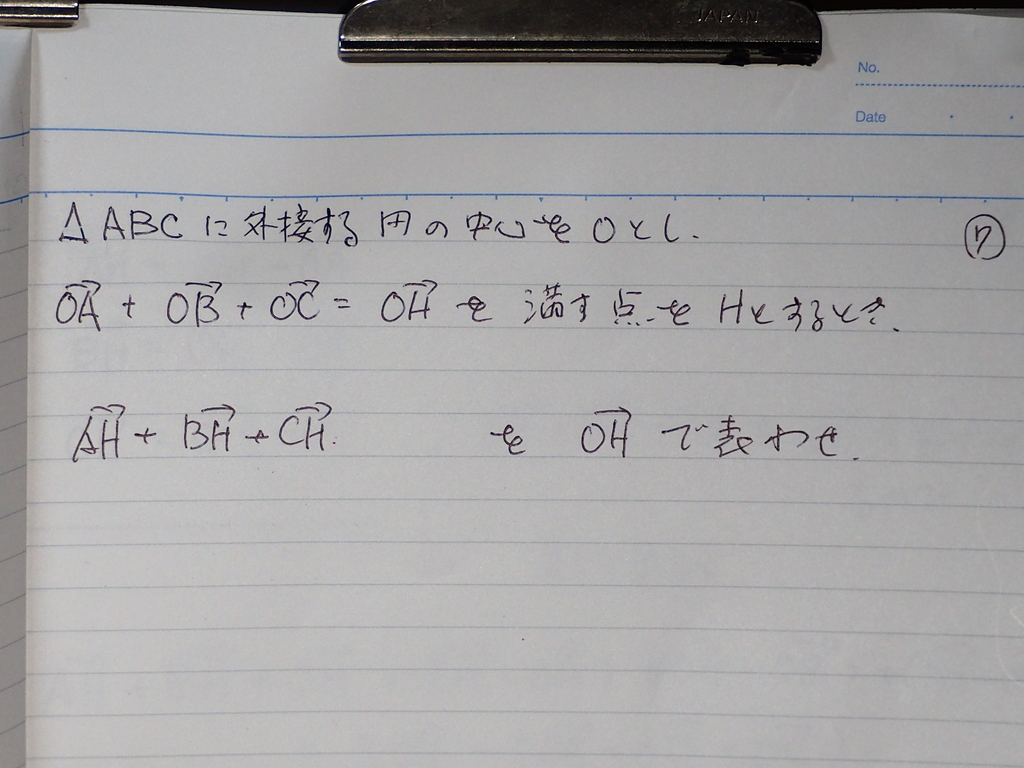 JAPAN
No.
Date
△ABCに外接する円の中心をOとし. ⑦
OA→ + OB→ + OC→ = OH→ を 満す点をHとするとき.
AH→ + BH→ + CH→. を OH→ で表わせ.